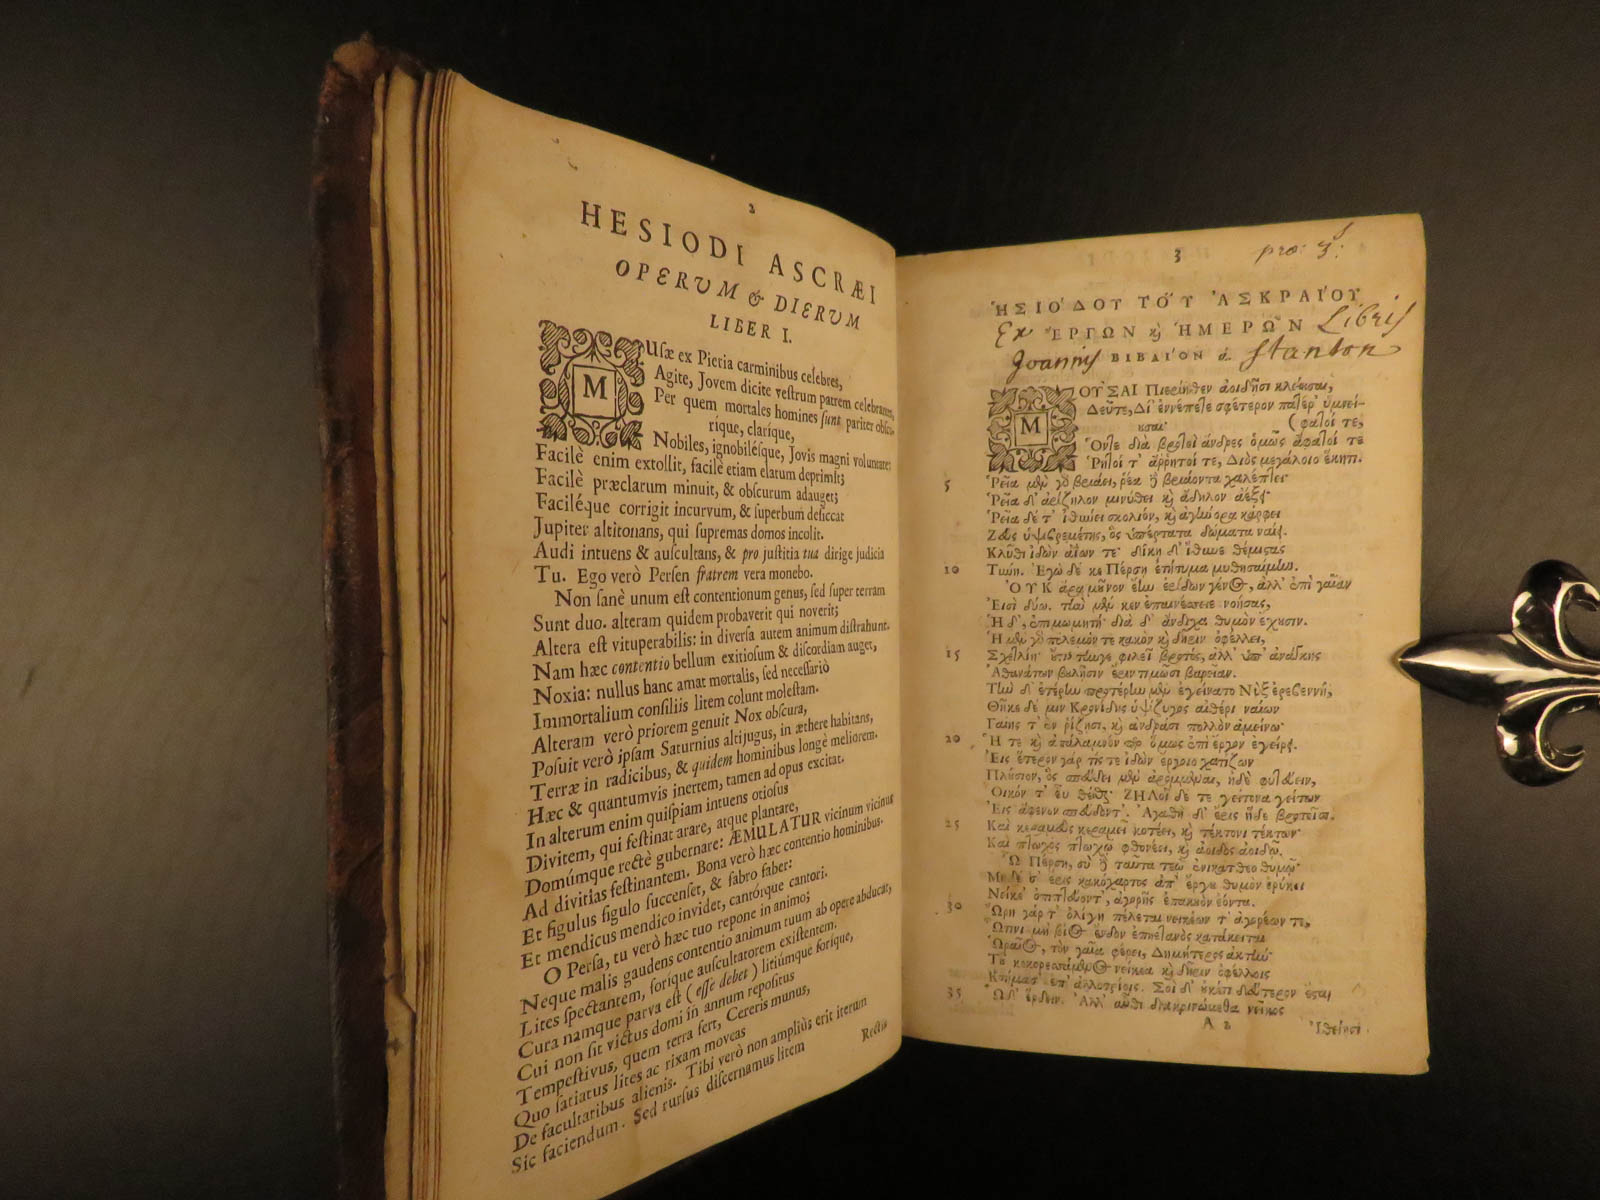 2
HESIODI ASCRÆI
OPERUM & DIERUM
LIBER I.
MUſæ ex Pieria carminibus celebres,
Agite, Jovem dicite veſtrum patrem celebrantes,
Per quem mortales homines ſunt pariter obſcu-
rique, clarique,
Nobiles, ignobileſque, Jovis magni voluntate:
Facilè enim extollit, facilè etiam elatum deprimit;
Facilè præclarum minuit, & obſcurum adauget;
Faciléque corrigit incurvum, & ſuperbum deſiccat
Jupiter altitonans, qui ſupremas domos incolit.
Audi intuens & auſcultans, & pro juſtitia tua dirige judicia
Tu. Ego verò Perſen fratrem vera monebo.
Non ſanè unum eſt contentionum genus, ſed ſuper terram
Sunt duo. alteram quidem probaverit qui noverit;
Altera eſt vituperabilis: in diverſa autem animum diſtrahunt.
Nam hæc contentio bellum exitioſum & diſcordiam auget,
Noxia: nullus hanc amat mortalis, ſed neceſſariò
Immortalium conſiliis litem colunt moleſtam.
Alteram verò priorem genuit Nox obſcura,
Poſuit verò ipſam Saturnius altijugus, in æthere habitans,
Terræ in radicibus, & quidem hominibus longè meliorem.
Hæc & quantumvis inertem, tamen ad opus excitat.
In alterum enim quiſpiam intuens otioſus
Divitem, qui feſtinat arare, atque plantare,
Domúmque rectè gubernare: ÆMULATUR vicinum vicinus
Ad divitias feſtinantem. Bona verò hæc contentio hominibus.
Et figulus figulo ſuccenſet, & fabro faber:
Et mendicus mendico invidet, cantórque cantori.
O Perſa, tu verò hæc tuo repone in animo;
Neque malis gaudens contentio animum tuum ab opere abducat,
Lites ſpectantem, forique auſcultatorem exiſtentem.
Cura namque parva eſt (eſſe debet) litiúmque forique,
Cui non ſit victus domi in annum repoſitus
Tempeſtivus, quem terra fert, Cereris munus,
Quo ſatiatus lites ac rixam moveas
De facultatibus alienis. Tibi verò non ampliùs erit iterum
Sic faciendum. Sed rurſus diſcernamus litem
Rectis
3
ἩΣΙΟΔΟΥ ΤΟΥ ἈΣΚΡΑΙΟΥ
Ex ἜΡΓΩΝ ϗ ἩΜΕΡΩΝ Libris
Joannis ΒΙΒΛΙΟΝ ά Stanton
ΜΟΥΣΑΙ Πιερίηθεν ἀοιδῇσι κλείουσαι,
Δεῦτε, Δί' ἐννέπετε σφέτερον πατέρ' ὑμνεί-
ουσαι· (φατοί τε,
Ὅντε διὰ βροτοὶ ἄνδρες ὁμῶς ἄφατοί τε
Ῥητοί τ' ἄρρητοί τε, Διὸς μεγάλοιο ἕκητι.
5 Ῥεῖα μὲν γὸ βριάει, ῥέα ϳ βριάοντα χαλέπτει·
Ῥεῖα δ' ἀρίζηλον μινύθει ϗ ἄδηλον ἀέξει·
Ῥεῖα δέ τ' ἰθύνει σκολιόν, ϗ ἀγήνορα κάρφει
Ζεὺς ὑψιβρεμέτης, ὃς ὑπέρτατα δώματα ναίει.
Κλῦθι ἰδὼν ἀΐων τε· δίκῃ δ' ἴθυνε θέμιστας
10 Τύνη. Ἐγὼ δέ κε Πέρσῃ ἐτήτυμα μυθησαίμην.
ΟΥΚ ἄρα μοῦνον ἔην ἐρίδων γένος, ἀλλ' ἐπὶ γαῖαν
Εἰσὶ δύω. τὴν μὲν κεν ἐπαινέσειε νοήσας,
Ἡ δ', ἐπιμωμητή· διὰ δ' ἄνδιχα θυμὸν ἔχουσιν.
Ἡ μὲν γὸ πόλεμόν τε κακὸν ϗ δῆριν ὀφέλλει,
15 Σχετλίη· οὔτις τήνγε φιλεῖ βροτός, ἀλλ' ὑπ' ἀνάγκης
Ἀθανάτων βουλῇσιν ἔριν τιμῶσι βαρεῖαν.
Τὴν δ' ἑτέρην προτέρην μὲν ἐγείνατο Νὺξ ἐρεβεννή,
Θῆκε δέ μιν Κρονίδης ὑψίζυγος αἰθέρι ναίων
Γαίης τ' ἐν ῥίζησι, ϗ ἀνδράσι πολλὸν ἀμείνω·
20 Ἥ τε ϗ ἀπάλαμνόν περ ὅμως ἐπὶ ἔργον ἐγείρει.
Εἰς ἕτερον γάρ τίς τε ἰδὼν ἔργοιο χατίζων
Πλούσιον, ὃς σπεύδει μὲν ἀρόμμεναι, ἠδὲ φυτεύειν,
Οἶκόν τ' εὖ θέσθαι· ΖΗΛΟΙ δέ τε γείτονα γείτων
Εἰς ἄφενον σπεύδοντ'. Ἀγαθὴ δ' ἔρις ἥδε βροτοῖσι.
25 Καὶ κεραμεὺς κεραμεῖ κοτέει, ϗ τέκτονι τέκτων·
Καὶ πτωχὸς πτωχῷ φθονέει, ϗ ἀοιδὸς ἀοιδῷ.
Ὦ Πέρση, σὺ ϳ ταῦτα τεῷ ἐνικάτθεο θυμῷ·
Μηδέ σ' ἔρις κακόχαρτος ἀπ' ἔργου θυμὸν ἐρύκοι
Νείκε' ὀπιπτεύοντ', ἀγορῆς ἐπακουὸν ἐόντα.
30 Ὥρη γάρ τ' ὀλίγη πέλεται νεικέων τ' ἀγορέων τε,
Ὧτινι μὴ βίος ἔνδον ἐπηετανὸς κατάκειται
Ὡραῖος, τὸν γαῖα φέρει, Δημήτερος ἀκτήν·
Τοῦ κεκορεσσάμενος νείκεα ϗ δῆριν ὀφέλλοις
Κτήμασ' ἐπ' ἀλλοτρίοις. Σοὶ δ' οὐκέτι δεύτερον ἔσται
35 Ὧδ' ἔρδειν. Ἀλλ' αὖθι διακρινώμεθα νεῖκος
A 2 Ἰθείῃσι